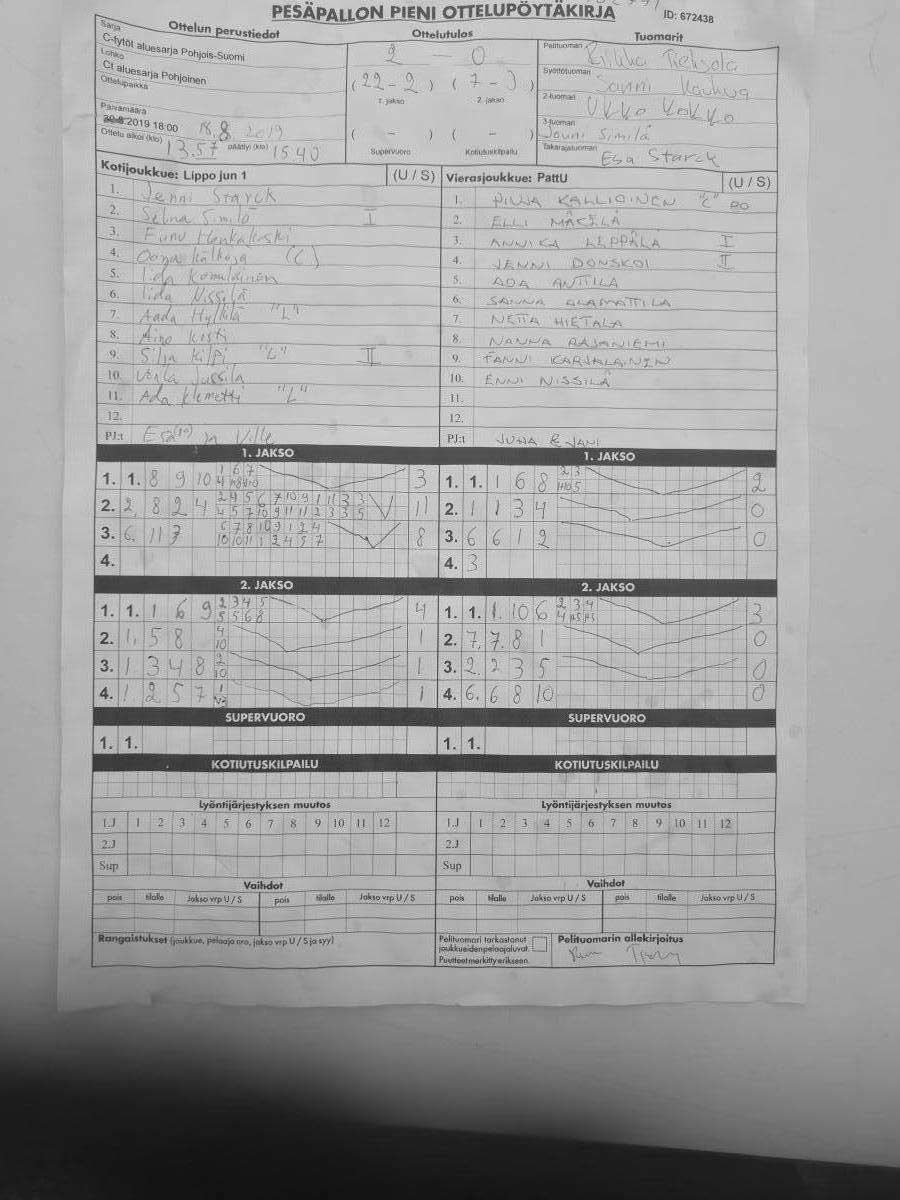 PESÄPALLON PIENI OTTELUPÖYTÄKIRJA
ID: 672438
Ottelun perustiedot
Sarja
C-tytöt aluesarja Pohjois-Suomi
Lohko
C1 aluesarja Pohjoinen
Ottelupaikka
Päivämäärä
30.8.2019 18:00 18.8 2019
Ottelu alkoi (klo) 13.57 päättyi (klo) 15.40
Ottelutulos
2 - 0
(22-2) (7-3)
1. jakso 2. jakso
( - ) ( - )
Supervuoro Kotiutuskilpailu
Tuomarit
Pelituomari
Syöttötuomari Sanni
2-tuomari Ukko Kokko
3-tuomari
Jouni Similä
Takarajatuomari Esa Starck
Kotijoukkue: Lippo jun 1 (U / S)
1. Jenni Starck
2. Selna Similä I
3.
4. Oona (C)
5. Iida Komulainen
6. Iida Nissilä
7. Aada "L"
8. Aino Kosti
9. Silja Kilpi "L" II
10. Jussila
11. Ada Klemetti "L"
12.
PJ:t Esa ja Ville
Vierasjoukkue: PattU (U / S)
1. KALLIOINEN "C"
2. ELLI MÄKELÄ
3. ANNIKA LEPPÄLÄ I
4. JENNI DONSKOI II
5. ADA ANTTILA
6. SANNA ALAMATTILA
7. NETTA HIETALA
8. NANNA RAJANIEMI
9. FANNI KARJALAINEN
10. ENNI NISSILÄ
11.
12.
PJ:t JUHA & JANI
1. JAKSO
1. 1. 8 9 10 1 6 7 3
2. 2. 8 2 4 2 4 5 6 7 10 9 1 11 3 3 11
4 5 7 10 9 11 11 2 3 3 5
3. 6. 11 3 6 7 8 10 9 1 2 4 8
10 10 11 1 2 4 5 7
4.
1. JAKSO
1. 1. 1 6 8 2 3 2
2. 1 1 3 4 0
3. 6 6 1 2 0
4. 3
2. JAKSO
1. 1. 1 6 9 2 3 4 5 4
5 5 6 8
2. 1. 5 8 4 1
10
3. 1 3 4 8 2 1
10
4. 1 2 5 7 1 1
2. JAKSO
1. 1. 1. 10 6 2 3 4 3
2. 7. 7. 8 1 0
3. 2. 2 3 5 0
4. 6. 6 8 10 0
SUPERVUORO
1. 1.
SUPERVUORO
1. 1.
KOTIUTUSKILPAILU
KOTIUTUSKILPAILU
Lyöntijärjestyksen muutos
1.J 1 2 3 4 5 6 7 8 9 10 11 12
2.J
Sup
Lyöntijärjestyksen muutos
1.J 1 2 3 4 5 6 7 8 9 10 11 12
2.J
Sup
Vaihdot
pois tilalle Jakso vrp U / S pois tilalle Jakso vrp U / S
Vaihdot
pois tilalle Jakso vrp U / S pois tilalle Jakso vrp U / S
Rangaistukset (joukkue, pelaaja nro, jakso vrp U / S ja syy)
Pelituomari tarkastanut
joukkueiden pelaajaluvat.
Puutteet merkitty erikseen.
Pelituomarin allekirjoitus